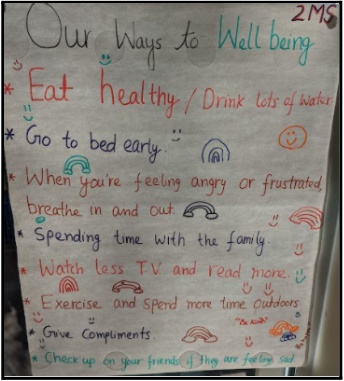 2MS
Our Ways to Well being
* Eat healthy / Drink lots of water
* Go to bed early.
* When you're feeling angry or frustrated,
breathe in and out.
* Spending time with the family.
* Watch less TV and read more.
* Exercise and spend more time outdoors
"Be kind"
* Give Compliments
* Check up on your friends if they are feeling sad.